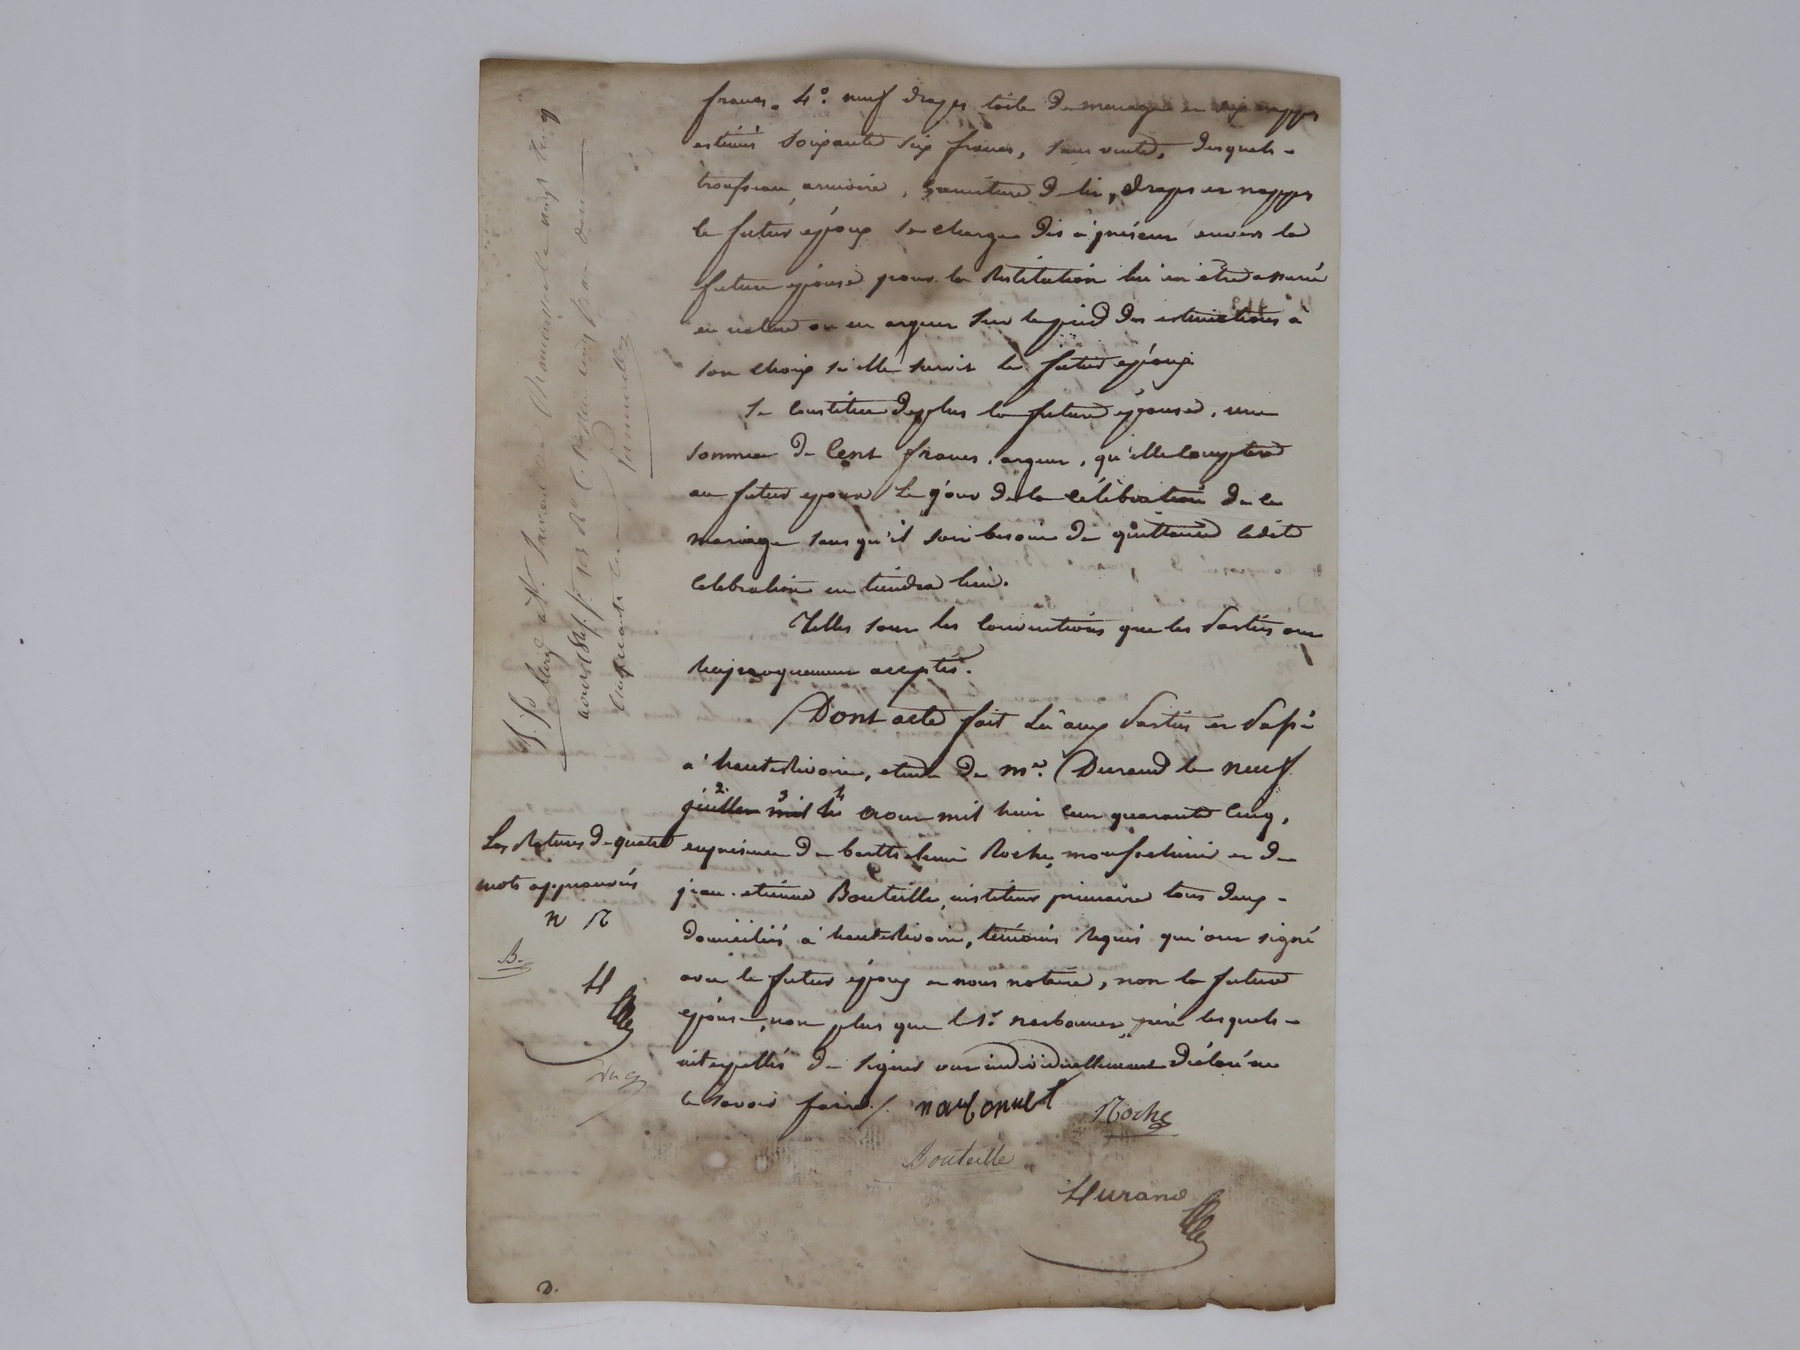 francs. 4° neuf draps toile de menage et six nappes
estimés soixante six francs, sans vente, desquels
trousseau, armoire, garniture de lit, draps et nappes
le futur époux se charge dès à présent envers la
future épouse pour la restitution lui en être assurée
en nature ou en argent sur le pied des estimations à
son choix si elle survit le futur époux.
Se constitue de plus la future épouse, une
somme de Cent francs, argent, qu'elle comptera
au futur epoux le jour de la célébration de ce
mariage sans qu'il soit besoin de quittance ladite
celebration en tiendra lieu.
Telles sont les conventions que les Parties ont
reciproquement acceptées.
Dont acte fait Lu aux Parties et Passé
à hauterivoire, etude de me. Durand le neuf
juillet mil huit aout mil huit cent quarante cinq,
en présence de barthelemi Roche, et de
jean-etienne Bouteille, instituteur primaire tous deux
domiciliés à hauterivoire, témoins requis qui ont signé
avec le futur époux et nous notaire, non la future
épouse, non plus que le Sr. narbonnet père lesquels
interpellés de signer ont individuellement déclaré ne
le savoir faire./. narbonnet Roche
Bouteille
Durand
Les Ratures de quatre
mots approuvés
n R
B.
D
cinquante cent